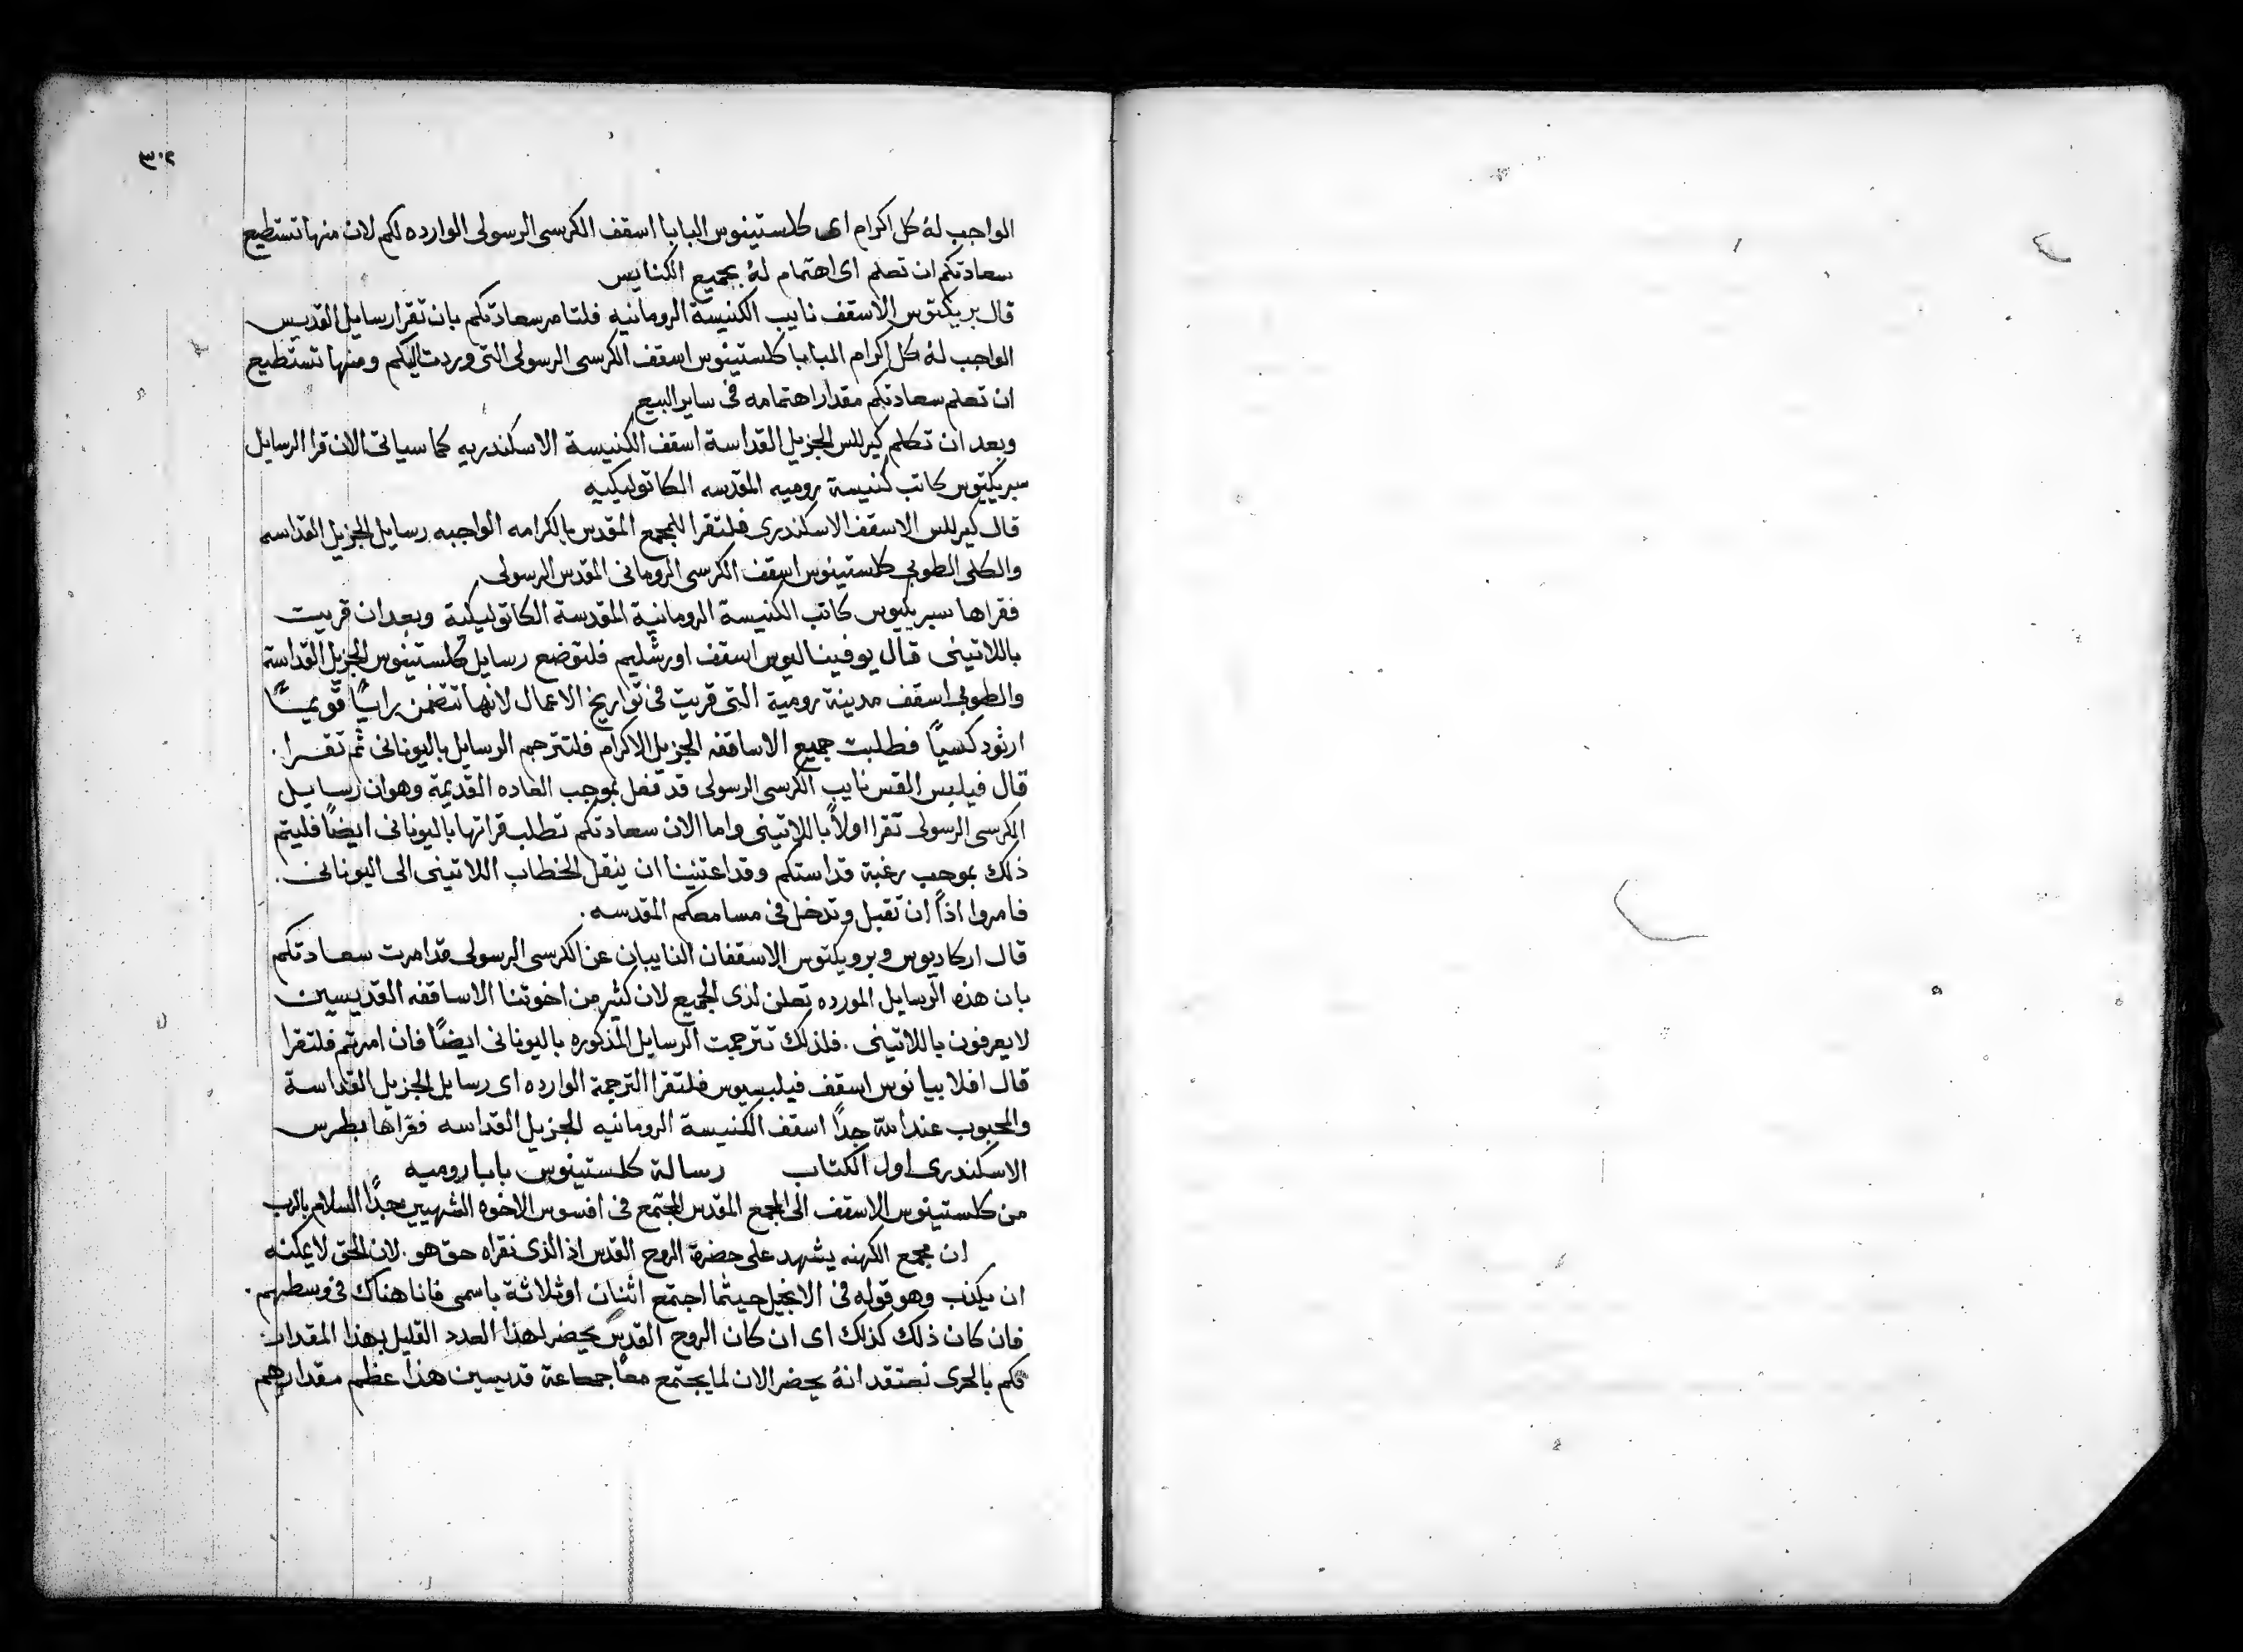 ٣٠٢
الواجب لهُ كل اكرام اى كلستينوس البابا اسقف الكرسى الرسولى الوارده لكم لان منها تستطيع
سعادتكم ان تعلم اى اهتمام لهُ بجميع الكنايس
قال بريكتوس الاسقف نايب الكنيسة الرومانيه فلتامر سعادتكم بان تقرا رسايل القديس
الواجب لهُ كل اكرام البابا كلستينوس اسقف الكرسى الرسولى التى وردت اليكم ومنها تستطيع
ان تعلم سعادتكم مقدار اهتمامه فى ساير البيع
وبعد ان تكلم كيرللس الجزيل القداسة اسقف الكنيسة الاسكندريه كما سياتى الان قرا الرسايل
سبريكيتوس كاتب كنيسة روميه المقدسه الكاتوليكيه
قال كيرللس الاسقف الاسكندرى فلتقرا للمجمع المقدس بالكرامه الواجبه رسايل الجزيل القداسه
والكلى الطوبى كلستينوس اسقف الكرسى الرومانى المقدس الرسولى
فقراها سبريكيوس كاتب الكنيسة الرومانية المقدسة الكاتوليكية وبعد ان قريت
باللاتينى قال يوفيناليوس اسقف اورشليم فلتوضع رسايل كلستينوس الجزيل القداسة
والطوبى اسقف مدينة رومية التى قريت فى تواريخ الاعمال لانها تتضمن راياً قويماً
ارثودكسياً فطلبت جميع الاساقفه الجزيل الاكرام فلتترجم الرسايل باليونانى ثم تقرا.
قال فيلبس القس نايب الكرسى الرسولى قد تفعل بموجب العاده القديمة وهو ان رسايل
الكرسى الرسولى تقرا اولاً باللاتينى واما الان سعادتكم تطلب قراتها باليونانى ايضاً فليتم
ذلك بموجب رغبة قداستكم وقد اعتنينا ان ينقل الخطاب اللاتينى الى اليونانى.
فامروا اذاً ان تقبل وتدخل فى مسامعكم المقدسه.
قال اركاديوس وبرويكتوس الاسقفان النايبان عن الكرسى الرسولى قد امرت سعادتكم
بان هذه الرسايل المورده تعلن لذى الجميع لان كثير من اخوتنا الاساقفه القديسين
لا يعرفون باللاتينى. فلذلك تترجمت الرسايل المذكوره باليونانى ايضاً فان امرتم فلتقرا
قال افلابيانوس اسقف فيلبسيوس فلتقرا الترجمة الوارده اى رسايل الجزيل القداسة
والمحبوب عند الله جداً اسقف الكنيسة الرومانيه الجزيل القداسه فقراها بطرس
الاسكندرى اول الكتاب رسالة كلستينوس بابا روميه
من كلستينوس الاسقف الى المجمع المقدس المجتمع فى افسوس الاخوه الشهيين جداً السلام بالرب
ان مجمع الكهنه يشهد على حضرة الروح القدس اذ الذى نقراه حق هو. لان الحق لا يمكنه
ان يكذب وهو قوله فى الانجيل حيثما اجتمع اثنان او ثلاثة باسمى فانا هناك فى وسطهم.
فان كان ذلك كذلك اى ان كان الروح القدس يحضر لهذا العدد القليل بهذا المقدار
فكم بالحرى نعتقد انهُ يحضر الان لما يجتمع معاً جماعة قديسين هذا عظم مقدارهم